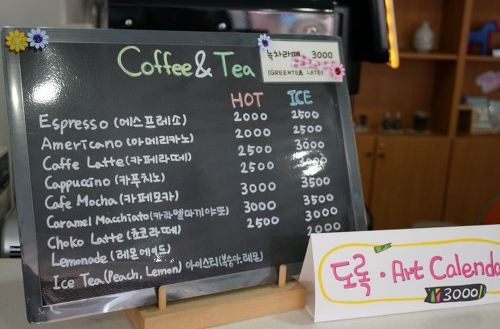 Coffee & Tea
녹차라떼 3000
(GREENTEA LATE)
HOT ICE
Espresso (에스프레소) 2000 2500
Americano (아메리카노) 2000 2500
Caffe Latte (카페라떼) 2500 3000
Cappuccino (카푸치노) 2500
Cafe Mocha (카페모카) 3000 3500
Caramel Macchiato (카라멜마끼야또) 3000 3500
Choko Latte (쵸코라떼) 2500 3000
Lemonade (레몬에이드)
Ice Tea (Peach, Lemon) 아이스티(복숭아, 레몬)
도록 · Art Calenda
3000